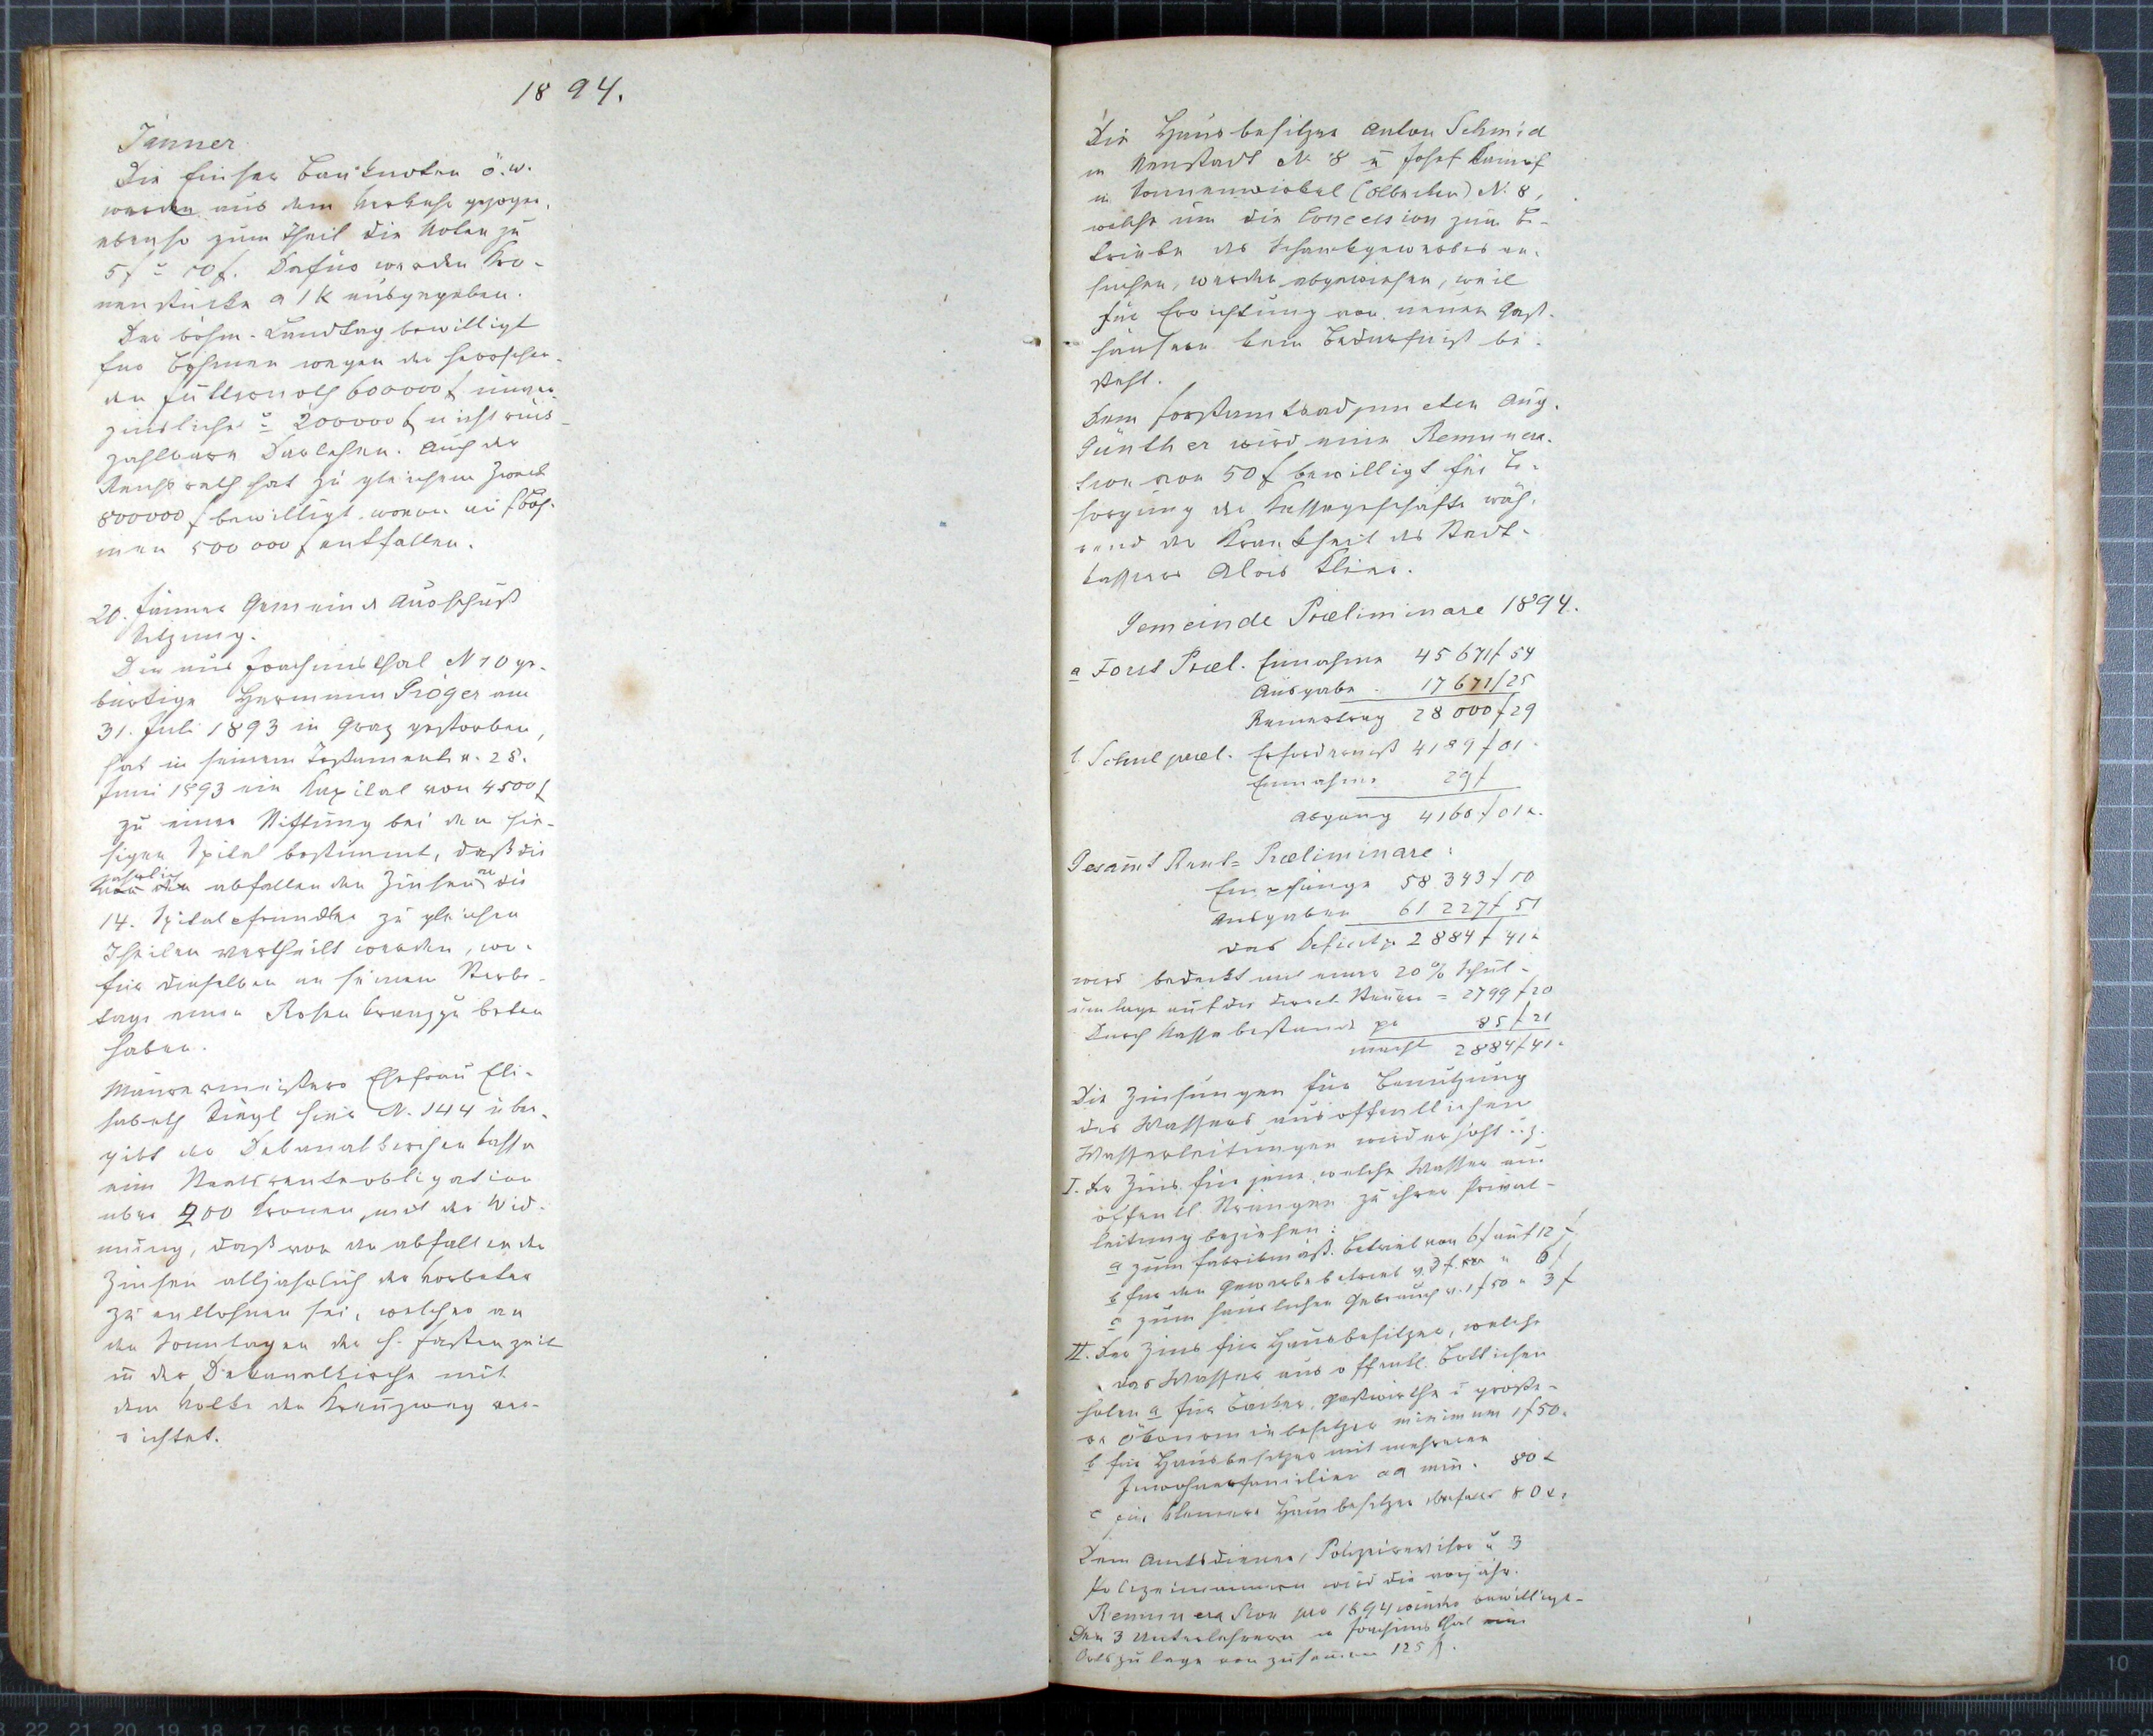 1894.
Jänner
Die Einser Banknoten ö. w.
werden aus dem Verkehr gezogen,
ebenso zum Theil die Noten zu
5 f u 10 f. Dafür werden Kro-
nenstücke a 1 K ausgegeben.
Der böhm. Landtag bewilligt
für Böhmen wegen der herrschen-
den Futternoth 600000 f unver-
zinsliche u 200000 f nicht rück-
zahlbare Darlehen. Auch der
Reichsrath hat zu gleichem Zweck
800000 f bewilligt, wovon auf Böh-
men 500 000 f entfallen.
20. Jänner Gemeinde Ausschuß
Sitzung.
Der aus Joachimsthal N 10 ge-
bürtige Hermann Pröger am
31. Juli 1893 in Graz gestorben,
hat in seinem Testamente v. 25.
Juni 1893 ein Kapital von 4500 f
zu einer Stiftung bei dem hie-
sigen Spital bestimmt, daß die
jährlich abfallenden Zinsen an die
14. Spitalpfründler zu gleichen
Theilen vertheilt werden, wo-
für dieselben an seinem Sterbe-
tage einen Rosenkranz zu beten
haben.
Maurermeisters Ehefrau Eli-
sabeth Siegl hier N. 144 über-
gibt der Dekanalkirchenkasse
eine Staatsrenteobligation
über 200 Kronen, mit der Wid-
mung, daß von den abfallenden
Zinsen alljährlich der Vorbeter
zu entlohnen sei, welcher an
den Sonntagen der h. Fastenzeit
in der Dekanalkirche mit
dem Volke den Kreuzweg ver-
richtet.
Die Hausbesitzer Anton Schmid
in Neustadt N. 8 u Josef
in Sonnenwirbel (Ölbecken) N. 8,
welche um die Concession zum Be-
triebe des Schankgewerbes an-
suchen, werden abgewiesen, weil
für Errichtung von neuen Gast-
häusern kein Bedürfniß be-
steht.
Dem Forstamtsadjuncten Aug.
Günther wird eine Remunera-
tion von 50 f bewilligt für Be-
sorgung der Kassegeschäfte wäh-
rend der Krankheit des Stadt-
kassiers Alois Klier.
Gemeinde Præliminare 1894.
a Forst Præl. Einnahme 45 671 f 54
Ausgabe 17 671 f 25
Reinertrag 28 000 f 29
b Schulpræl. Erforderniß 4189 f 01
Einnahme 29 f
Abgang 4160 f 01 x.
Gesamt Rent= Præliminare:
Empfänge 58 343 f 10
Ausgaben 61 227 f 51
das Deficit p 2884 f 41 x
wird bedeckt mit einer 20 % Schul-
umlage auf die direct. Steuern = 2799 f 20
Durch Kassebestand pr 85 f 21
macht 2884 f 41.
Die Zinsungen für Benutzung
des Wassers aus öffentlichen
Wasserleitungen wird erhöht u. z.
I. Der Zins für jene, welche Wasser aus
öffentl. Strängen zu ihrer Privat-
leitung beziehen:
a zum fabriksmäß. Betrieb von 6 f auf 12 f
b für den Gewerbebetrieb v. 3 f " 6 f
c zum häuslichen Gebrauch v. 1 f 50 " 3 f
II. Der Zins für Hausbesitzer, welche
das Wasser aus öffentl. Bottichen
holen a für Bäcker, Gastwirthe u große-
re Ökonomiebesitzer minimum 1 f 50.
b für Hausbesitzer mit mehreren
Inwohnerfamilien min. 80 x
c für kleinere Hausbesitzer 80 x.
Dem Amtsdiener, Polizeirevisor u 3
Polizeimännern wird die vorjähr.
Remuneration pro 1894 wieder bewilligt.
Den 3 Unterlehrern in Joachimsthal eine
Ortszulage von zusamen 125 f.